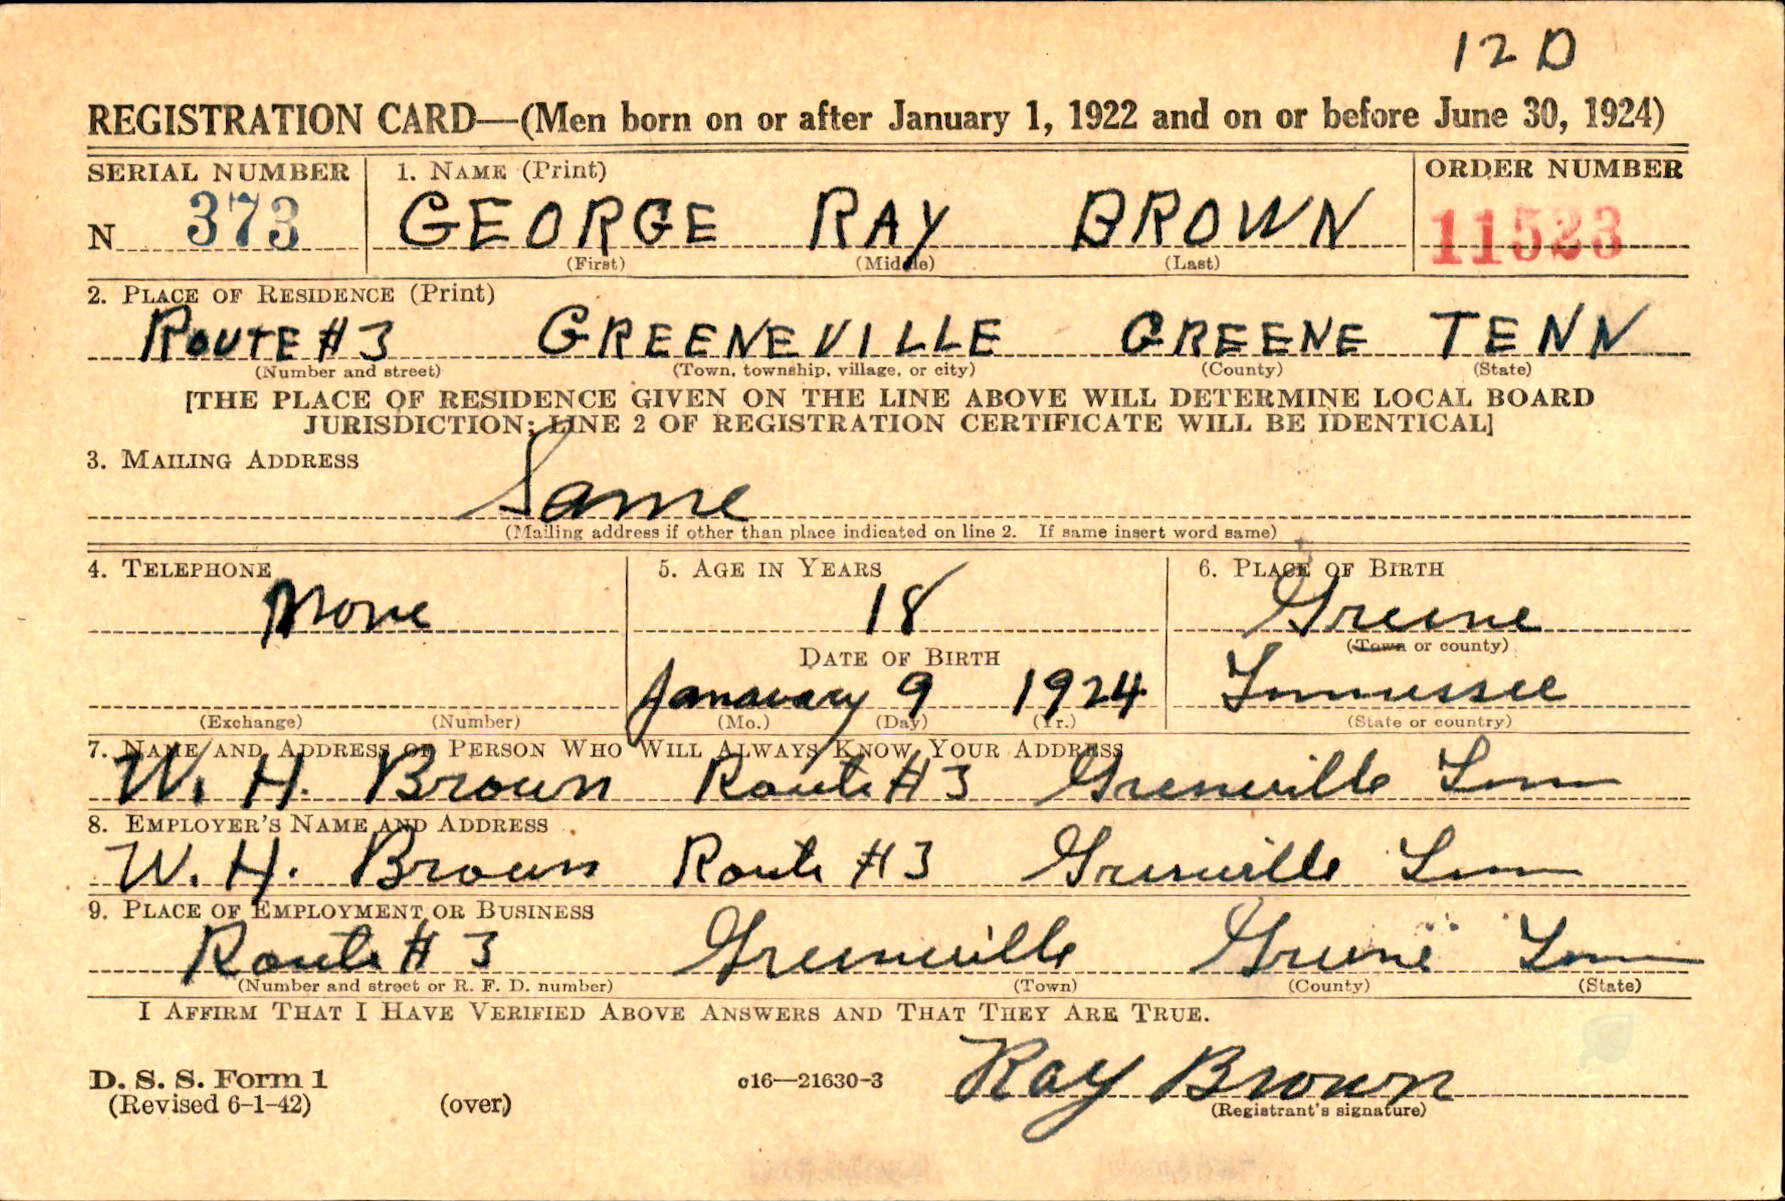 12 D
REGISTRATION CARD—(Men born on or after January 1, 1922 and on or before June 30, 1924)
SERIAL NUMBER 1. NAME (Print) ORDER NUMBER
N 373 GEORGE RAY BROWN 11523
(First) (Middle) (Last)
2. PLACE OF RESIDENCE (Print)
ROUTE #3 GREENEVILLE GREENE TENN
(Number and street) (Town, township, village, or city) (County) (State)
[THE PLACE OF RESIDENCE GIVEN ON THE LINE ABOVE WILL DETERMINE LOCAL BOARD
JURISDICTION; LINE 2 OF REGISTRATION CERTIFICATE WILL BE IDENTICAL]
3. MAILING ADDRESS
Same
(Mailing address if other than place indicated on line 2. If same insert word same)
4. TELEPHONE 5. AGE IN YEARS 6. PLACE OF BIRTH
None 18 Greene
(Town or county)
DATE OF BIRTH
Janauary 9 1924 Tennessee
(Exchange) (Number) (Mo.) (Day) (Yr.) (State or country)
7. NAME AND ADDRESS OF PERSON WHO WILL ALWAYS KNOW YOUR ADDRESS
W. H. Brown Route #3 Greenville Tenn
8. EMPLOYER'S NAME AND ADDRESS
W. H. Brown Route #3 Greenville Tenn
9. PLACE OF EMPLOYMENT OR BUSINESS
Route #3 Greenville Greene Tenn
(Number and street or R. F. D. number) (Town) (County) (State)
I AFFIRM THAT I HAVE VERIFIED ABOVE ANSWERS AND THAT THEY ARE TRUE.
D. S. S. Form 1 c16—21630-3 Ray Brown
(Revised 6-1-42) (over) (Registrant's signature)